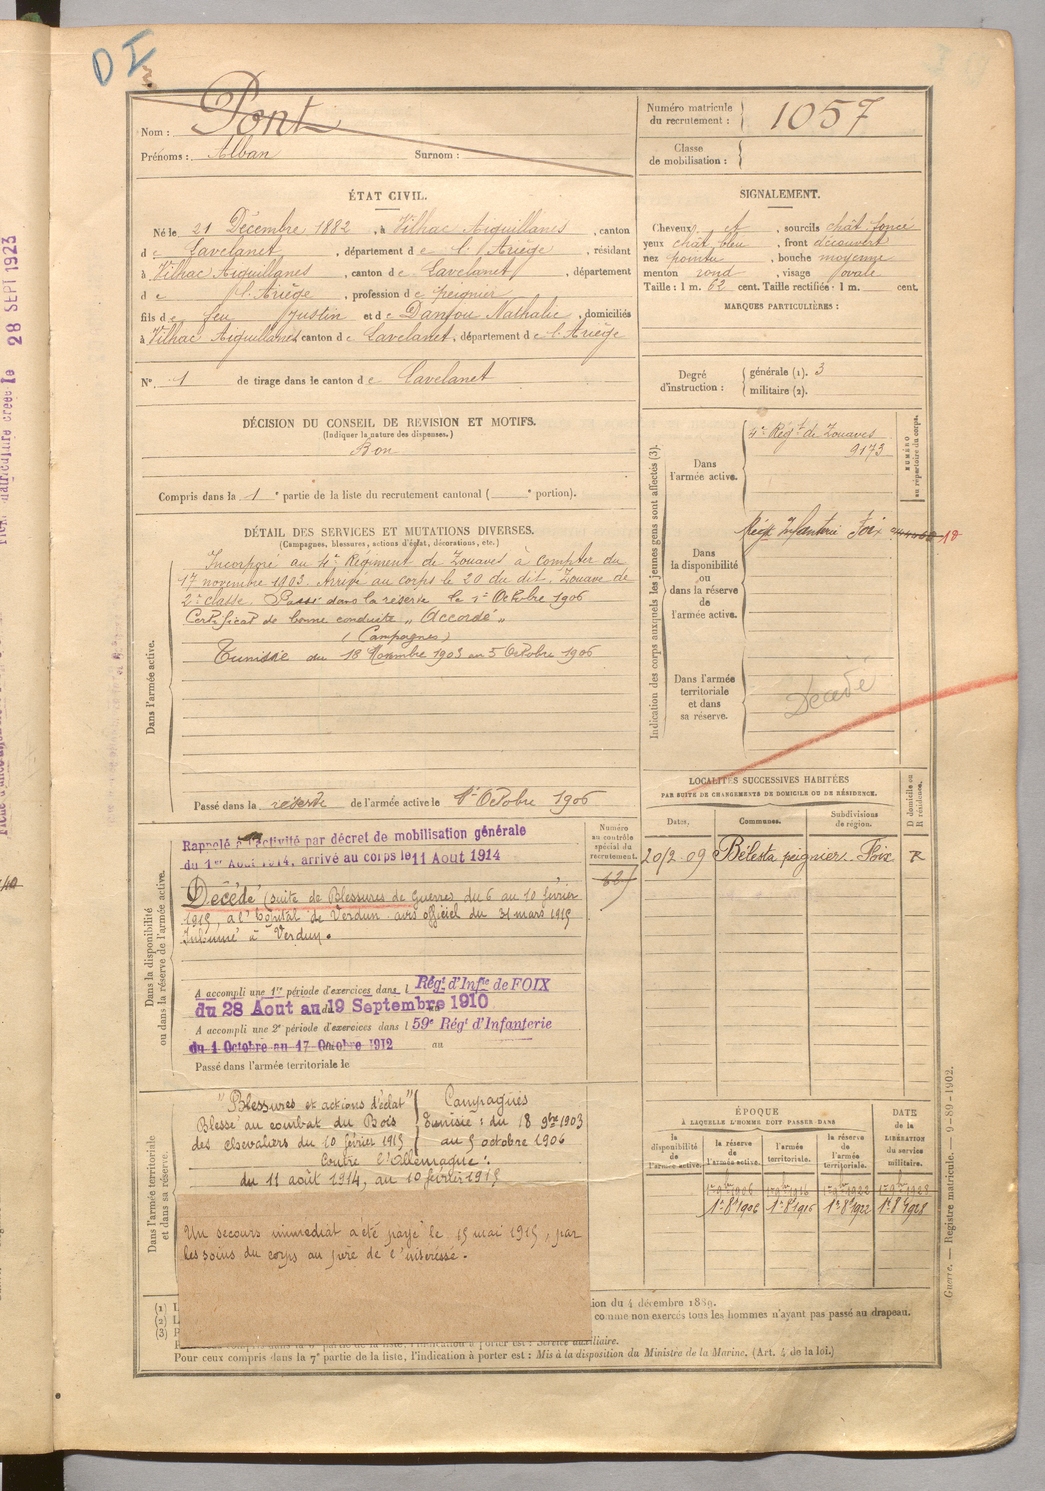 D I
Nom : Pont
Prénoms : Alban Surnom :
Numéro matricule du recrutement : 1057
Classe de mobilisation :
ÉTAT CIVIL.
Né le 21 Décembre 1882, à Vilhac Aiguillanes, canton
de Lavelanet, département de l'Ariège, résidant
à Vilhac Aiguillanes, canton de Lavelanet, département
de l'Ariège, profession de peignier
fils de feu Justin et de Danjou Nathalie, domiciliés
à Vilhac Aiguillanes canton de Lavelanet, département de l'Ariège
N° 1 de tirage dans le canton de Lavelanet
SIGNALEMENT.
Cheveux et, sourcils chât foncé
yeux chât bleu, front découvert
nez pointu, bouche moyenne
menton rond, visage ovale
Taille : 1 m. 62 cent. Taille rectifiée : 1 m. cent.
MARQUES PARTICULIÈRES :
Degré d'instruction : générale (1). 3
militaire (2).
DÉCISION DU CONSEIL DE REVISION ET MOTIFS.
(Indiquer la nature des dispenses.)
Bon
Compris dans la 1e partie de la liste du recrutement cantonal ( e portion).
DÉTAIL DES SERVICES ET MUTATIONS DIVERSES.
(Campagnes, blessures, actions d'éclat, décorations, etc.)
Dans l'armée active.
Incorporé au 4e Régiment de Zouaves à compter du
17 novembre 1903. Arrivé au corps le 20 du dit. Zouave de
2e classe. Passé dans la réserve le 1er Octobre 1906
Certificat de bonne conduite „ Accordé „
(Campagnes)
Tunisie du 18 Novembre 1903 au 5 Octobre 1906
Passé dans la réserve de l'armée active le 1er Octobre 1906
Indication des corps auxquels les jeunes gens sont affectés (3).
NUMÉRO au répertoire du corps.
Dans l'armée active.
4e Régt de Zouaves
9173
Dans la disponibilité ou dans la réserve de l'armée active.
Régt Infanterie Foix 18
Dans l'armée territoriale et dans sa réserve.
Décédé
LOCALITÉS SUCCESSIVES HABITÉES
PAR SUITE DE CHANGEMENTS DE DOMICILE OU DE RÉSIDENCE.
Dates. Communes. Subdivisions de région. D domicile ou R résidence.
20/2 09 Bélesta peignier Foix R
Dans la disponibilité ou dans la réserve de l'armée active.
Numéro au contrôle spécial du recrutement.
Rappelé à l'activité par décret de mobilisation générale
du 1er Aout 1914, arrivé au corps le 11 Aout 1914
Décédé (suite de Blessures de Guerres du 6 au 10 février
1915, à l'hôpital de Verdun avis officiel du 31 mars 1915
Inhumé à Verdun.
A accompli une 1re période d'exercices dans l Régt d'Infie de FOIX
du 28 Aout au 19 Septembre 1910
A accompli une 2e période d'exercices dans l 59e Régt d'Infanterie
du 1 Octobre au 17 Octobre 1912 au
Passé dans l'armée territoriale le
Dans l'armée territoriale et dans sa réserve.
"Blessures et actions d'éclat"
Blessé au combat du Bois
des
du 10 février 1915
Campagnes
Tunisie : du 18 9bre 1903
au 5 octobre 1906
Contre l'Allemagne :
du 11 août 1914, au 10 février 1915
Un secours immédiat a été payé le 15 mai 1915, par
les soins du corps au père de l'intéressé.
ÉPOQUE
À LAQUELLE L'HOMME DOIT PASSER DANS
la disponibilité de l'armée active. la réserve de l'armée active. l'armée territoriale. la réserve de l'armée territoriale.
DATE DE LA LIBÉRATION du service militaire.
1er 8bre 1906 1er 8bre 1916 1er 8bre 1922 1er 8bre 1928
(1) L
(2) L
(3) P
ion du 4 décembre 1889.
comme non exercés tous les hommes n'ayant pas passé au drapeau.
l'indication à porter est : Service auxiliaire.
Pour ceux compris dans la 7e partie de la liste, l'indication à porter est : Mis à la disposition du Ministre de la Marine. (Art. 4 de la loi.)
Guerre. — Registre matricule. — 9-89-1902.
28 SEPT 1923